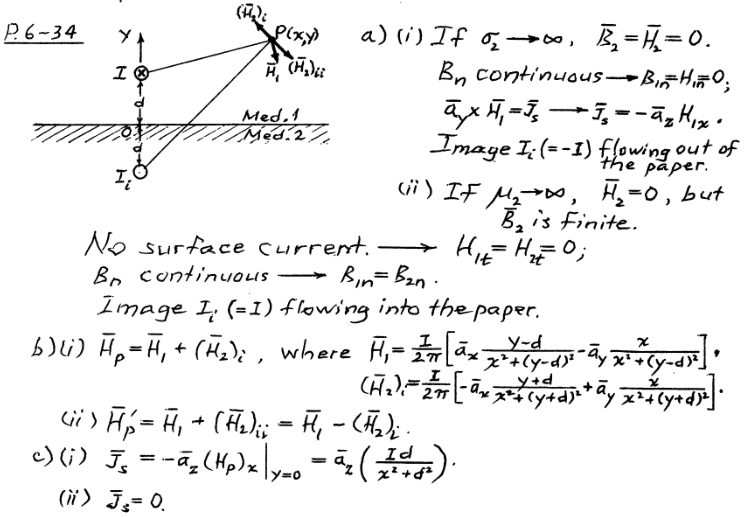 P. 6-34
(H̄₂)ᵢ
Y
P(x,y)
I
H̄₁
(H̄₂)ᵢᵢ
d
Med. 1
O
Med. 2
d
Iᵢ
a) (i) If σ₂ → ∞, B̄₂ = H̄₂ = 0.
Bₙ continuous → B₁ₙ = H₁ₙ = 0;
ā_y x H̄₁ = J̄ₛ → J̄ₛ = -ā_z H₁ₓ.
Image Iᵢ (= -I) flowing out of
the paper.
(ii) If μ₂ → ∞, H̄₂ = 0, but
B̄₂ is finite.
No surface current. → H₁ₜ = H₂ₜ = 0;
Bₙ continuous → B₁ₙ = B₂ₙ.
Image Iᵢ (= I) flowing into the paper.
b) (i) H̄_p = H̄₁ + (H̄₂)ᵢ, where H̄₁ = I/2π [āₓ (y-d)/(x²+(y-d)²) - ā_y x/(x²+(y-d)²)],
(H̄₂)ᵢ = I/2π [-āₓ (y+d)/(x²+(y+d)²) + ā_y x/(x²+(y+d)²)].
(ii) H̄_p' = H̄₁ + (H̄₂)ᵢᵢ = H̄₁ - (H̄₂)ᵢ.
c) (i) J̄ₛ = -ā_z (H_p)ₓ |_{y=0} = ā_z (Id/(x²+d²)).
(ii) J̄ₛ = 0.